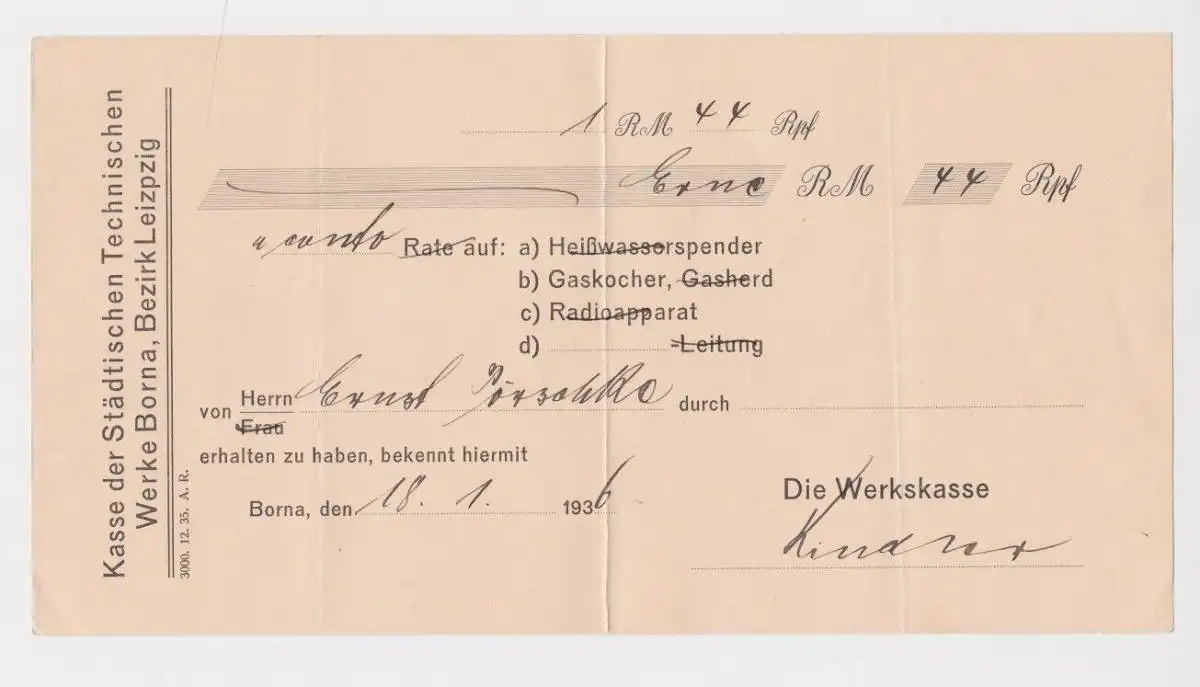 Kasse der Städtischen Technischen
Werke Borna, Bezirk Leizpzig
3000. 12. 35. A. R.
1 RM 44 Rpf
Eine RM 44 Rpf
a conto Rate auf: a) Heißwasserspender
b) Gaskocher, Gasherd
c) Radioapparat
d) =Leitung
von Herrn Ernst durch
Frau
erhalten zu haben, bekennt hiermit
Borna, den 18. 1. 1936
Die Werkskasse